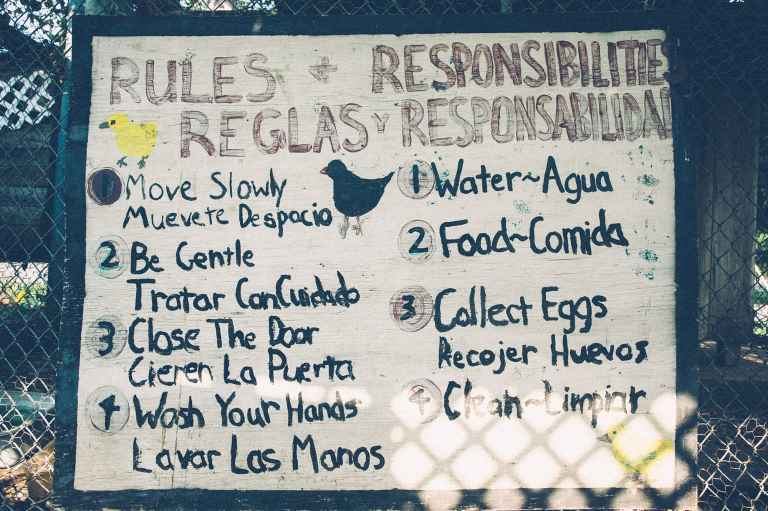 RULES + RESPONSIBILITIE
REGLAS Y RESPONSABILIDA
1 Move Slowly
Muevete Despacio
2 Be Gentle
Tratar Con Cuidado
3 Close The Door
Cieren La Puerta
4 Wash Your Hands
Lavar Las Manos
1 Water~Agua
2 Food~Comida
3 Collect Eggs
Recojer Huevos
4 Clean~Limpiar